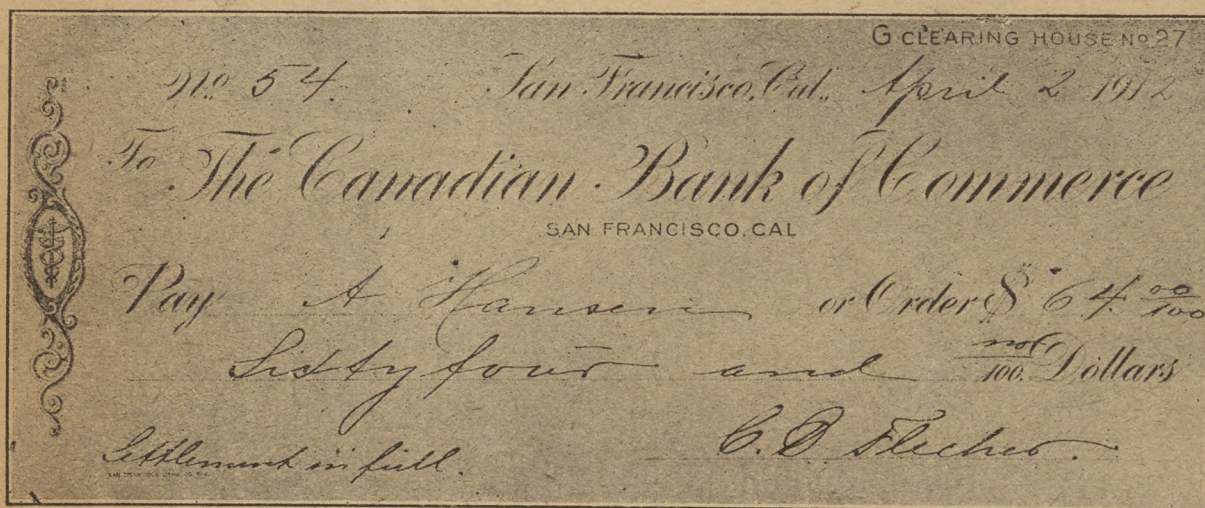 G CLEARING HOUSE No 27
No. 54. San Francisco, Cal., April 2 1912
To The Canadian Bank of Commerce
SAN FRANCISCO, CAL
Pay A Hansen or Order $ 64 00/100
Sixty four and no/100 Dollars
Settlement in full. C. D. Flecher.